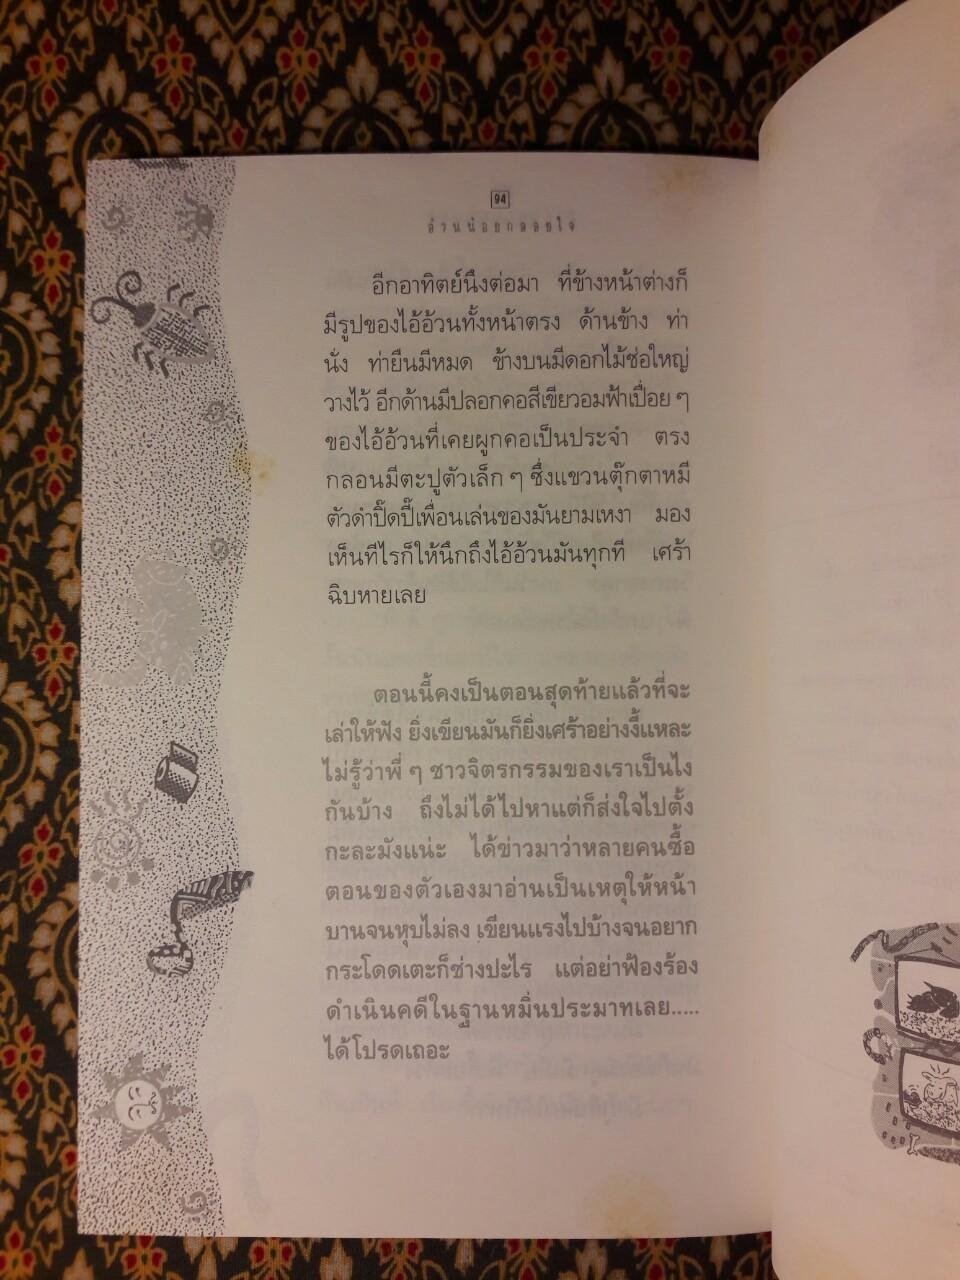 94
อ่านน่อยกลอยใจ
อีกอาทิตย์นึงต่อมา ที่ข้างหน้าต่างก็
มีรูปของไอ้อ้วนทั้งหน้าตรง ด้านข้าง ท่า
นั่ง ท่ายืนมีหมด ข้างบนมีดอกไม้ช่อใหญ่
วางไว้ อีกด้านมีปลอกคอสีเขียวอมฟ้าเปื่อย ๆ
ของไอ้อ้วนที่เคยผูกคอเป็นประจำ ตรง
กลอนมีตะปูตัวเล็ก ๆ ซึ่งแขวนตุ๊กตาหมี
ตัวดำปิ๊ดปี๊เพื่อนเล่นของมันยามเหงา มอง
เห็นทีไรก็ให้นึกถึงไอ้อ้วนมันทุกที เศร้า
ฉิบหายเลย
ตอนนี้คงเป็นตอนสุดท้ายแล้วที่จะ
เล่าให้ฟัง ยิ่งเขียนมันก็ยิ่งเศร้าอย่างงี้แหละ
ไม่รู้ว่าพี่ ๆ ชาวจิตรกรรมของเราเป็นไง
กันบ้าง ถึงไม่ได้ไปหาแต่ก็ส่งใจไปตั้ง
กะละมังแน่ะ ได้ข่าวมาว่าหลายคนซื้อ
ตอนของตัวเองมาอ่านเป็นเหตุให้หน้า
บานจนหุบไม่ลง เขียนแรงไปบ้างจนอยาก
กระโดดเตะก็ช่างปะไร แต่อย่าฟ้องร้อง
ดำเนินคดีในฐานหมิ่นประมาทเลย.....
ได้โปรดเถอะ